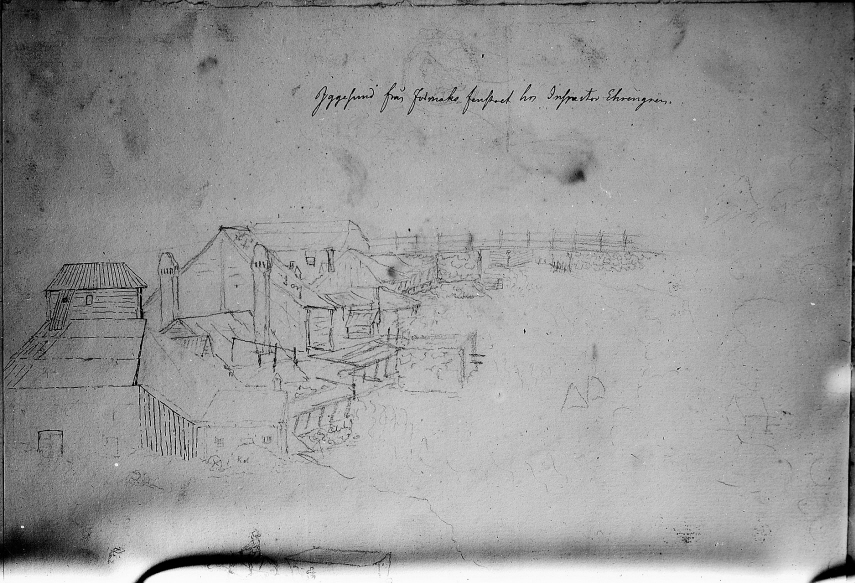 Iggesund från Förmaks fenstret hos Inspector Ehrengren.